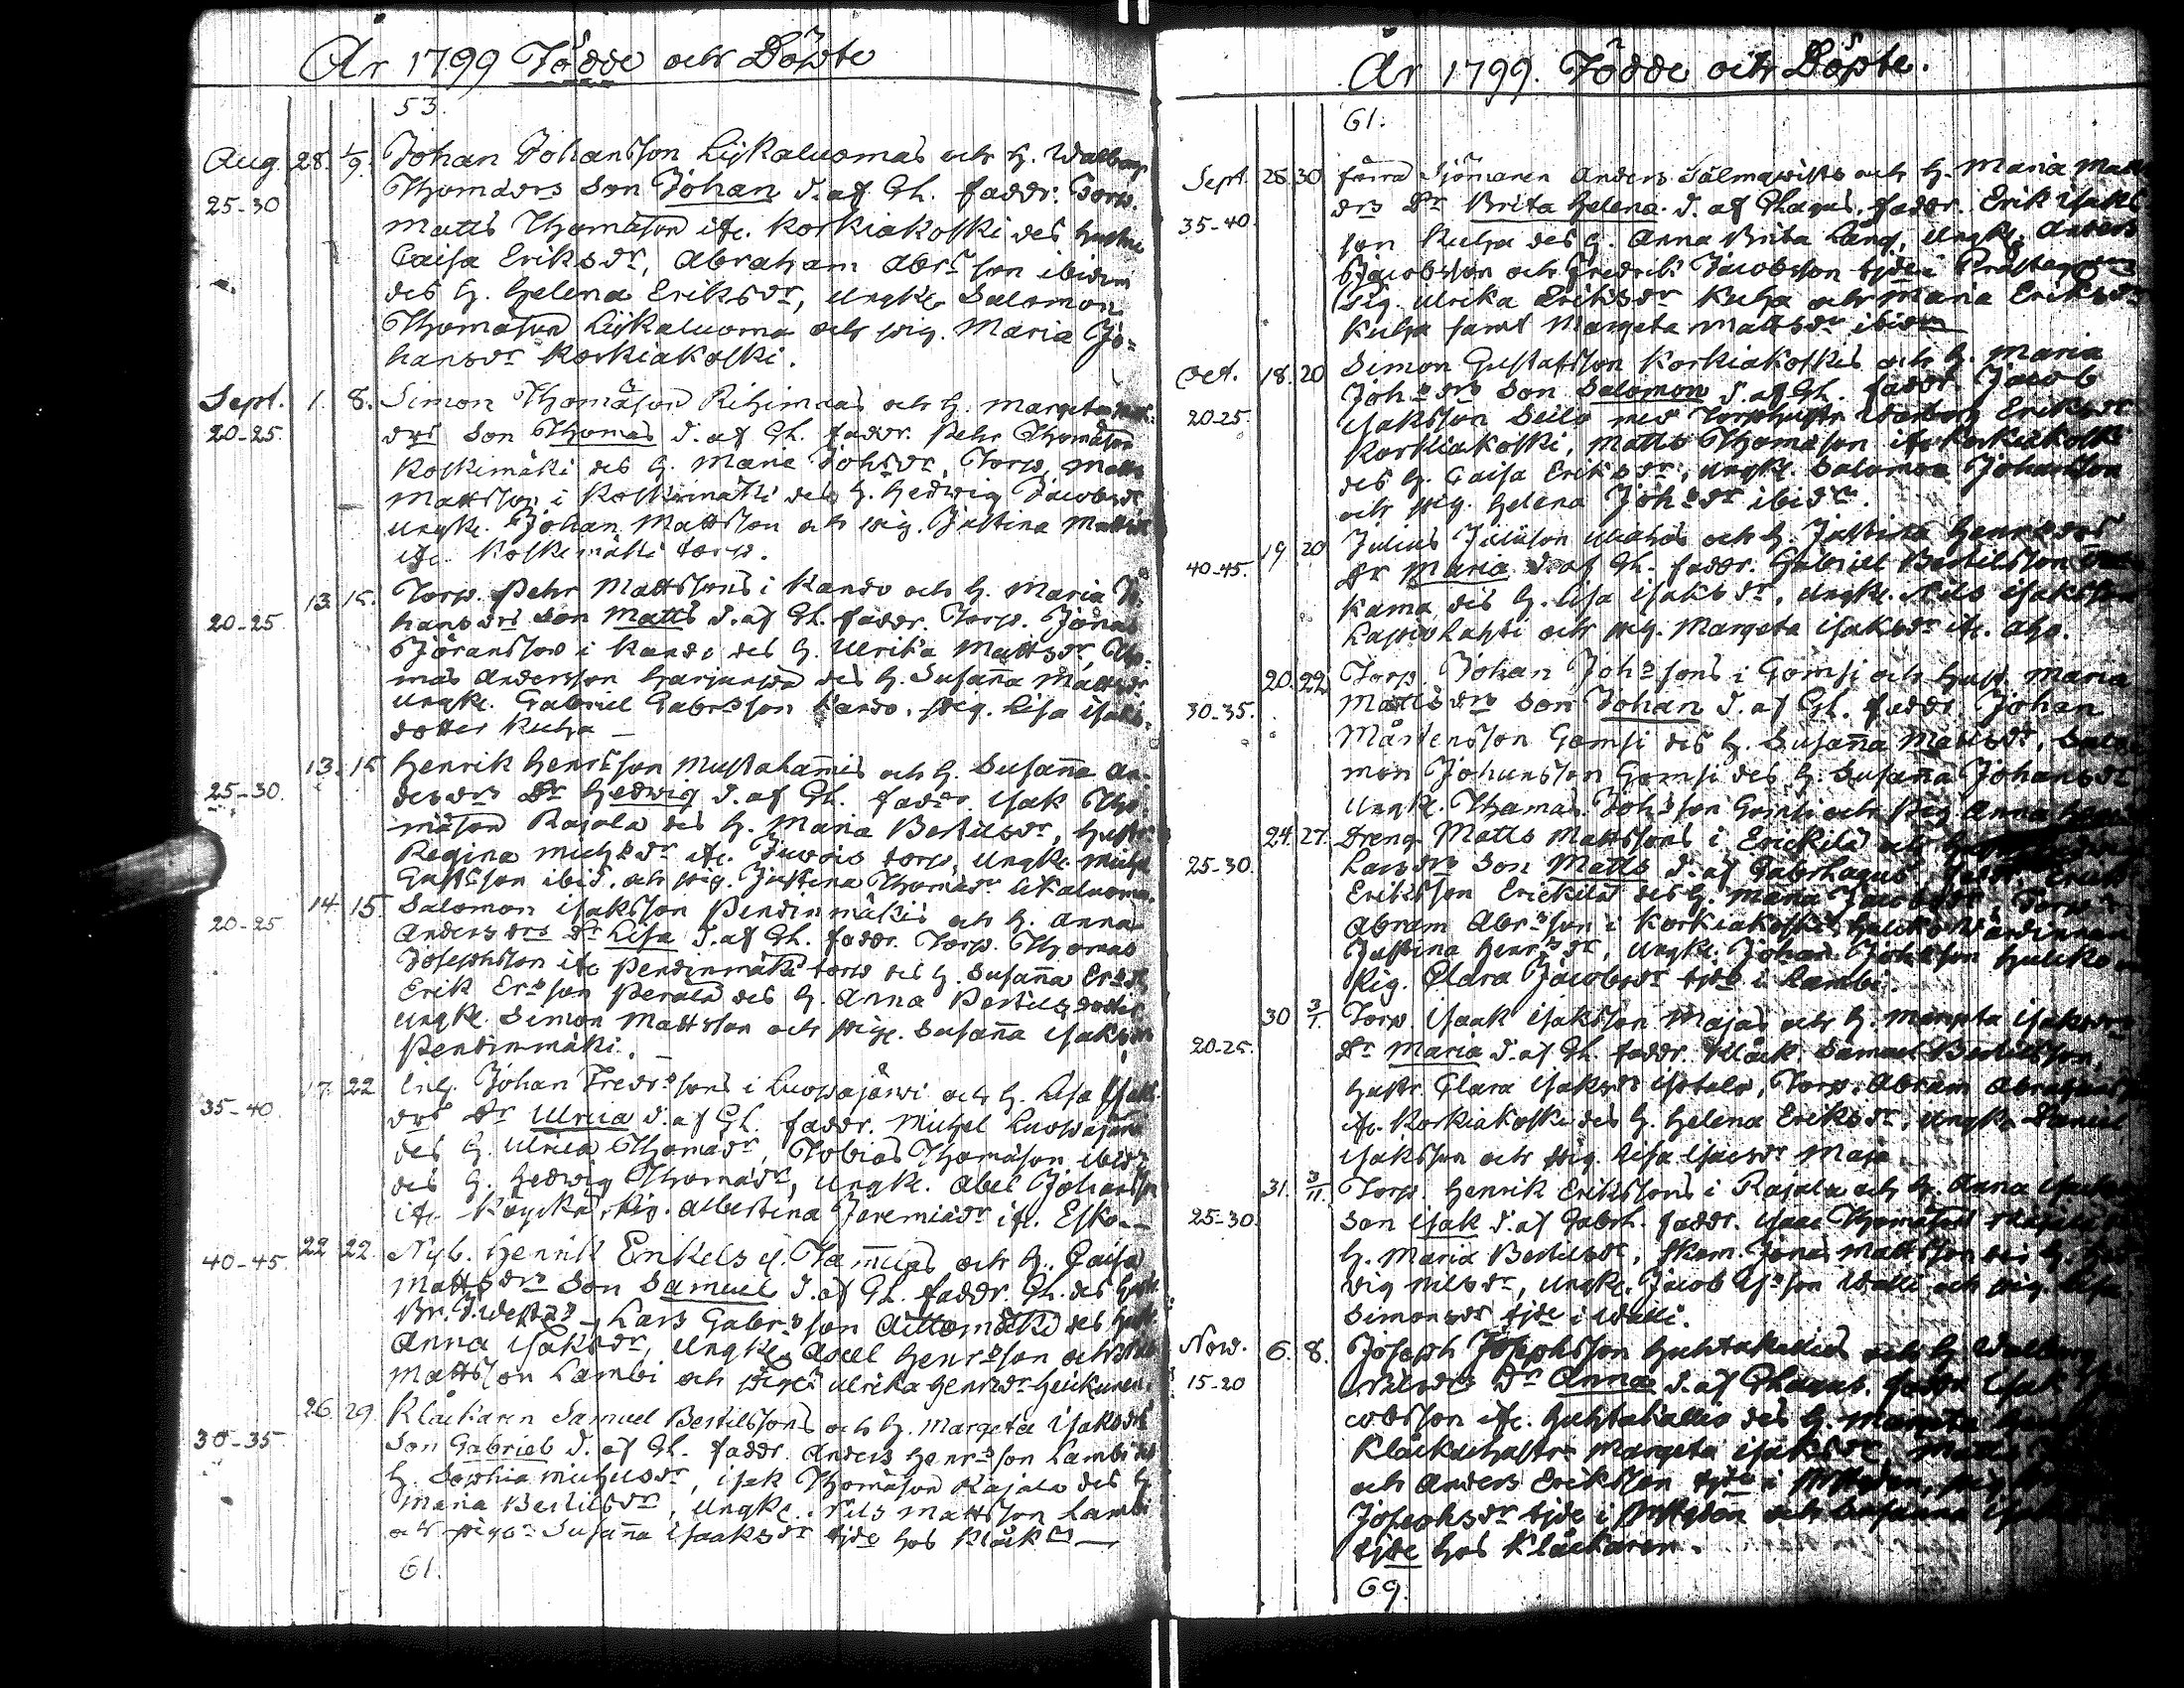 År 1799 Födde och Döpte
53.
Aug. 28. 1/9. Johan Johansson Lijkaluomas och h. Walborg
25-30 Thomædrs Son Johan d. af Ch. faddr: Torp.
Matts Thomæson ifr. Korkiakoski des hustru
Caisa Eriksdr, Abraham Abrs son ibidem
des h. Helena Eriksdr, ungk. Salomon
Thomæson Lijkaluoma och pig. Maria Jo-
hansdr Korkiakoski.
Sept. 1. 8. Simon Thomæson Rihimaas och h. Margeta
20-25. drs Son Thomas d. af Ch. faddr. Pehr Thomæson
Koskimäki des h. Maria Johsdr, Torp. Matts
Mattsson i Koskimäki des h. Hedwig Jacobsdr
ungk. Johan Mattsson och pig. Justina Mattsdr
ifr. Koskimäki torp.
13. 15. Torp. Pehr Mattssons i Kando och h. Maria Jo-
20-25. hansdrs Son Matts d. af Ch. faddr. Torp. Jonas
Jöransson i Kando des h. Ulrika Mattsdr, Tho-
mas Andersson Harjunpä des h. Susaña Mattsdr
ungk. Gabriel Gabrsson Kando, pig. Lisa Isaks-
dotter Kuha
13. 15 Henrik Henrsson Mustalamis och h. Susaña An-
25-30. desdrs Dr Hedwig d. af Ch. faddr. Isak Tho-
mæson Rajala des h. Maria Bertilsdr, hustr.
Regina Michsdr ifr. Juvois torp, ungk. Michel
Gustsson ibid. och pig. Justina Thomædr Likaluoma.
14. 15. Salomon Isaksson Pendinmäkis och h. Anna
20-25 Andersdrs Dr Lisa d. af Ch. faddr. Torp. Thomas
Josephsson ifr Pendinmäki torp des h. Susaña Ersdr
Erik Ersson Perala des h. Anna Bertilsdotter
ungk. Simon Mattsson och pige. Susaña Isaksdr
Pendinmäki.
17. 22 Inh. Johan Fredrssons i Luopajärvi och h. Lisa Isaks
35-40 drs Dr Ulrica d. af Ch. faddr. Michel Luopajärvi
des h. Ulrica Thomædr, Tobias Thomæson ibidm
des h. Hedwig Thomædr, ungk. Abel Johansson
ifr. Köyckä, pig. Albertina Jeremiædr ifr. Esko
22 22. Nyb. Henrik Erikels el. Tam̃elas och h. Caisa
40-45. Mattsdrs Son Samuel d. af Ch. faddr. Ch. des
Lars Gabrsson Aittomäki des
Anna Isaksdr, ungk. Axel Henrsson och
Mattsson Lambi och pige. Ulrika Henrsdr Heikuren.
26. 29. Klåckaren Samuel Bertilssons och h. Margeta Isaksdrs
30-35 Son Gabriel d. af Ch. faddr. Anders Henrsson Lambi des
h. Sophia Michelsdr, Isak Thomæson Rajala des h
Maria Bertilsdr, ungk. Nils Mattsson Lambi
och pigan Susaña Isaaksdr tjde hos Klåck
61.
År 1799. Födde och Döpte.
61.
Sept. 28 30 förra Sjömaren Anders Sälmqwists och h. Maria Matts
35-40. drs Dr Brita Helena d. af Chagus. faddr. Erik Isaks
son Kuha des h. Anna Brita Lång, ungk. Anders
Jacobsson och Fredrik Jacobsson tjde i Prästegården
pig. Ulrika Eriksdr Kuha och Maria Eriksdr
Kuha samt Margeta Mattsdr ibidm
Oct. 18. 20 Simon Gustafsson Korkiakoskis och h. Maria
20-25. Johsdrs Son Salomon d. af Ch. faddr. Jacob
Isaksson Seilo med Torphustr Walborg Eriksdr
Korkiakoski, Matts Thomæson ifr Korkiakoski
des h. Caisa Eriksdr, ungk. Salomon Johansson
och pig. Helena Johsdr ibidm.
19 20 Julius Juliison Ahos och h. Justina Henrsdrs
40-45. Dr Maria d. af Ch. faddr. Gabriel Bertilsson
kama des h. Lisa Isaksdr, ungk. Nils Isaksson
Lapiolahti och pig. Margeta Isaksdr ifr. Aho.
20. 22 Torp. Johan Johssons i Gomsi och hust. Maria
30-35. Mattsdrs Son Johan d. af Ch. faddr Johan
Mårtensson Gomsi des h. Susaña Mattsdr, Salo-
mon Johansson Gomsi des h. Susaña Johansdr
Ungk. Thomas Johsson Gomsi och Pig. Anna
24. 27. Dreng Matts Mattssons i Erickilä och
25-30. Larsdrs Son Matts d. af Gabrhagus, faddr. Erick
Eriksson Erickilä des h. Maria Jacobsdr, Torp.
Abram Abrsson i Korkiakoski
Justina Henrsdr, ungk. Johan Johsson
Pig. Clara Jacobsdr tjde i Lambi.
30 3/1. Torp. Isaak Isaksson Majas och h. Margeta Isaksdrs
20-25. Dr Maria d. af Ch. faddr. Klåck. Samuel Bertilsson,
Hustr. Clara Isaksdr Isotalo, Torp. Abram
ifr. Korkiakoski des h. Helena Eriksdr, ungk. Daniel
Isaksson och pig. Lisa Isacsdr Maja
31. 3/11. Torp. Henrik Erikssons i Rajala och h. Anna
25-30. Son Isak d. af Gabrh. faddr. Isaac Thomæson Rajala
h. Maria Bertilsdr, Skom. Jonas Mattsson des h.
wig Nilsdr, ungk. Jacob Ersson Walli och pig. Lisa
Simonsdr tjde i Walli.
Now. 6. 8. Joseph Josephsson Huhtakallios och h. Walborg
15-20 Nilsdrs Dr Anna d. af Chagus. faddr Isak
cobsson ifr. Huhtakallio des h. Margeta
Klåckhustr. Margeta Isaksdr, Matts
och Anders Eriksson tjde i
Josephsdr tjde i och Susanna
tjde hos Klåckaren.
69.